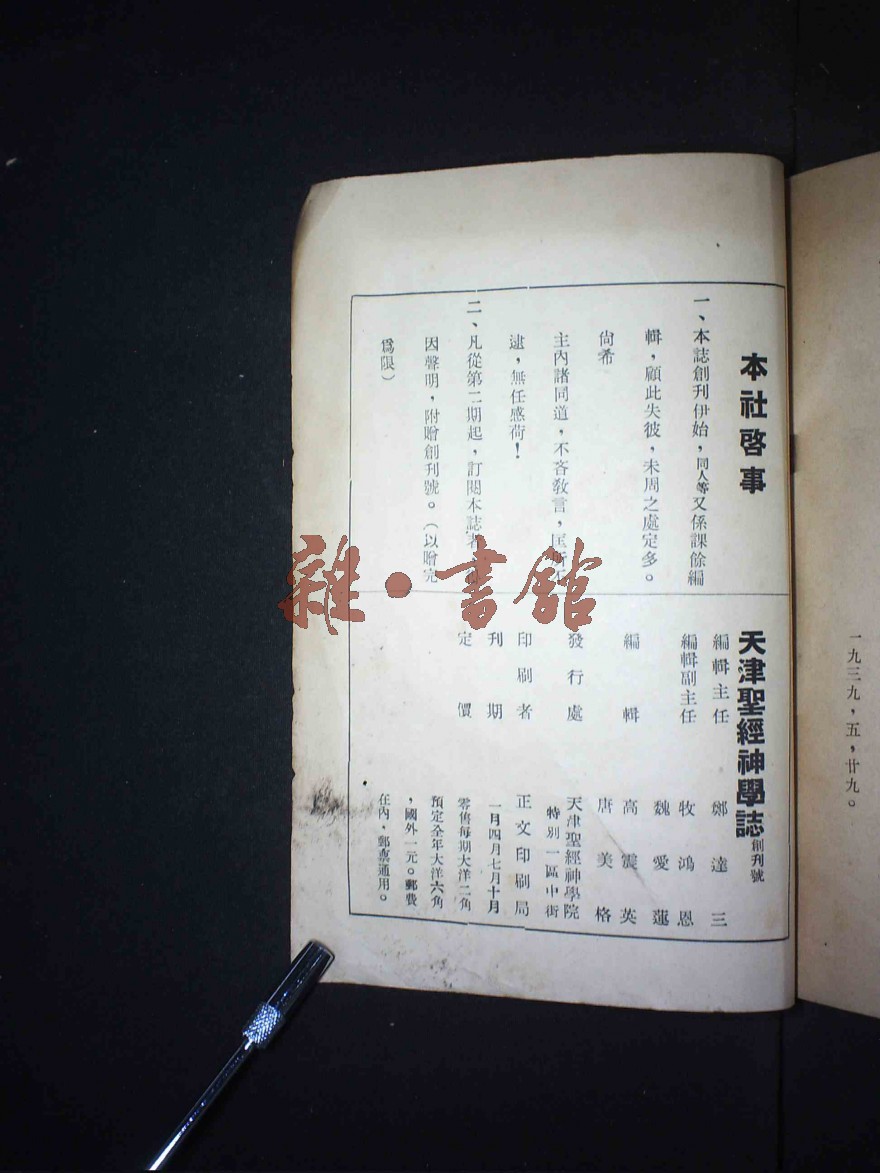 一九三九，五，廿九。
本社啓事
一、本誌創刊伊始，同人等又係課餘編
輯，顧此失彼，未周之處定多。
尙希
主內諸同道，不吝敎言，匡所不
逮，無任感荷！
二、凡從第二期起，訂閱本誌者
因聲明，附贈創刊號。（以贈完
爲限）
天津聖經神學誌創刊號
編輯主任 鄭達三
編輯副主任 牧鴻恩
魏愛蓮
編輯 高震英
唐美格
發行處 天津聖經神學院
特別一區中街
印刷者 正文印刷局
刊期 一月四月七月十月
定價 零售每期大洋二角
預定全年大洋六角
，國外一元。郵費
在內，郵票通用。
雜·書館